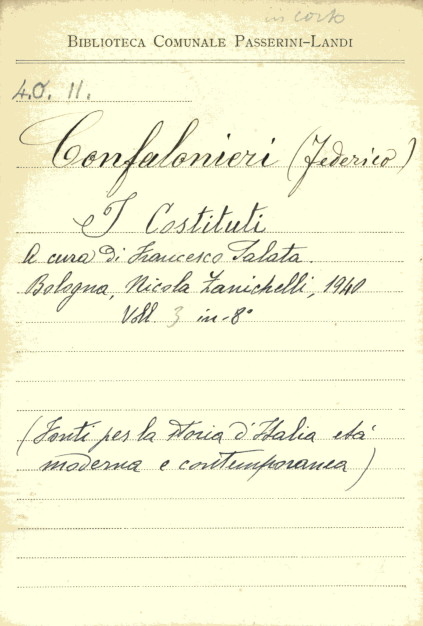 in corso
BIBLIOTECA COMUNALE PASSERINI-LANDI
4.O. 11.
Confalonieri (Federico)
I Costituti
A cura di Francesco Salata.
Bologna, Nicola Zanichelli, 1940
Voll. 3 in-8°
(Fonti per la storia d'Italia età
moderna e contemporanea)